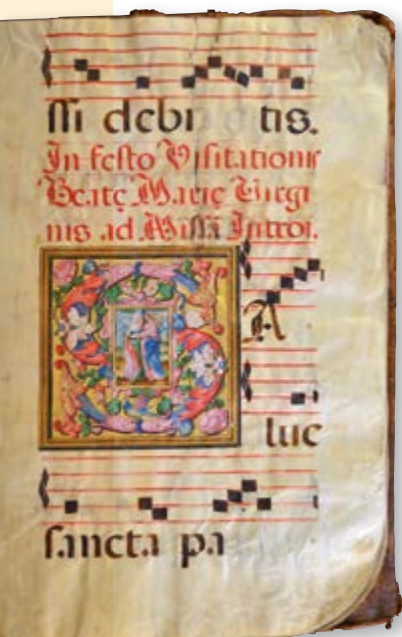 ssi debi tis.
In festo Visitationis
Beatę Marię Virgi
nis ad Missā Introi.
A
luc
sancta pa